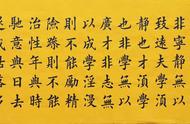 非寧靜無以
致遠夫學須
靜也才須學
也非學無以
廣才非志無
以成學淫慢
則不能勵精
險躁則不能
治性年與時
馳意與日去
遂成